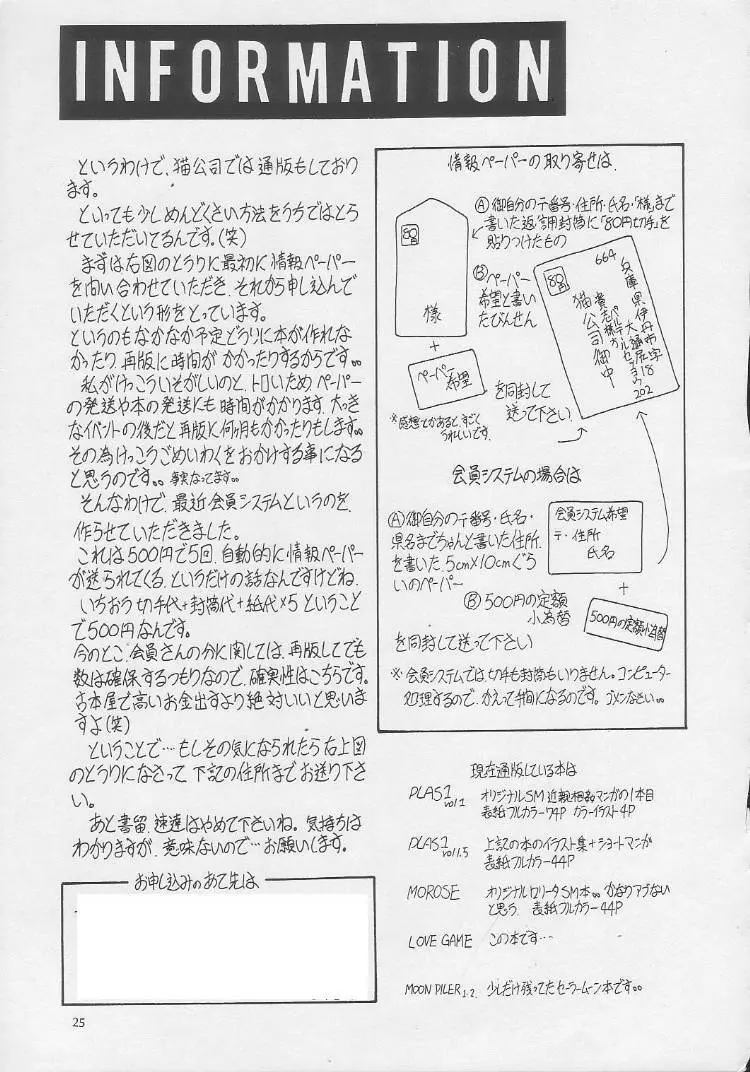 INFORMATION
というわけで、猫公司では通版もしており
ます。
といっても少しめんどくさい方法をうちではとら
せていただいてるんです。(笑)
まずは右図のとうりに最初に情報ペーパー
を問い合わせていただき、それから申し込んで
いただくという形をとっています。
というのもなかなか予定どうりに本が作れな
かったり、再版に時間がかかったりするからです。。
私がけっこういそがしいのと、トロいため、ペーパー
の発送や本の発送にも時間がかかります、大っき
なイベントの後だと再版に何ヶ月もかかったりもします。。
その為けっこうごめいわくをおかけする事になる
と思うのです。。事実なってます。。
そんなわけで、最近会員システムというのを、
作らせていただきました。
これは500円で5回、自動的に情報ペーパー
が送られてくる、というだけの話なんですけどね、
いちおう切手代+封筒代+紙代×5ということ
で500円なんです。
今のとこ、会員さんの分に関しては、再版してでも
数は確保するつもりなので、確実性はこちらです。
古本屋で高いお金出すより絶対いいと思いま
すよ(笑)
ということで…もしその気になられたら右上図
のとうりになさって下記の住所までお送り下さ
い。
あと書留、速達はやめて下さいね。気持ちは
わかりますが、意味ないので…お願いします。
お申し込みのあて先は
25
情報ペーパーの取り寄せは、
Ⓐ御自分の〒番号・住所・氏名・「様」まで
書いた返信用封筒に「80円切手」を
貼りつけたもの
80
様
Ⓑペーパー
希望と書い
たびんせん
+
ペーパー
希望
を同封して
送って下さい
*感想とかあると、すごく
うれしいです。
80
664
兵庫県伊丹市
猫公司御中
会員システムの場合は
Ⓐ御自分の〒番号・氏名・
県名までちゃんと書いた住所
を書いた5cm×10cmぐら
いのペーパー
会員システム希望
〒・住所
氏名
+
Ⓑ500円の定額
小為替
500円の定額小為替
を同封して送って下さい
*会員システムでは、切手も封筒もいりません。コンピューター
処理するので、かえって手間になるのです。ゴメンなさい。。
現在通販している本は
PLAS1 vol.1 オリジナルSM近親相姦マンガの1本目
表紙フルカラー74P カラーイラスト4P
PLAS1 vol1.5 上記の本のイラスト集+ショートマンガ
表紙フルカラー44P
MOROSE オリジナルロリータSM本。。かなりアブない
と思う。表紙フルカラー44P
LOVE GAME この本です…
MOON PILER 1.2. 少しだけ残ってたセーラームーン本です。。